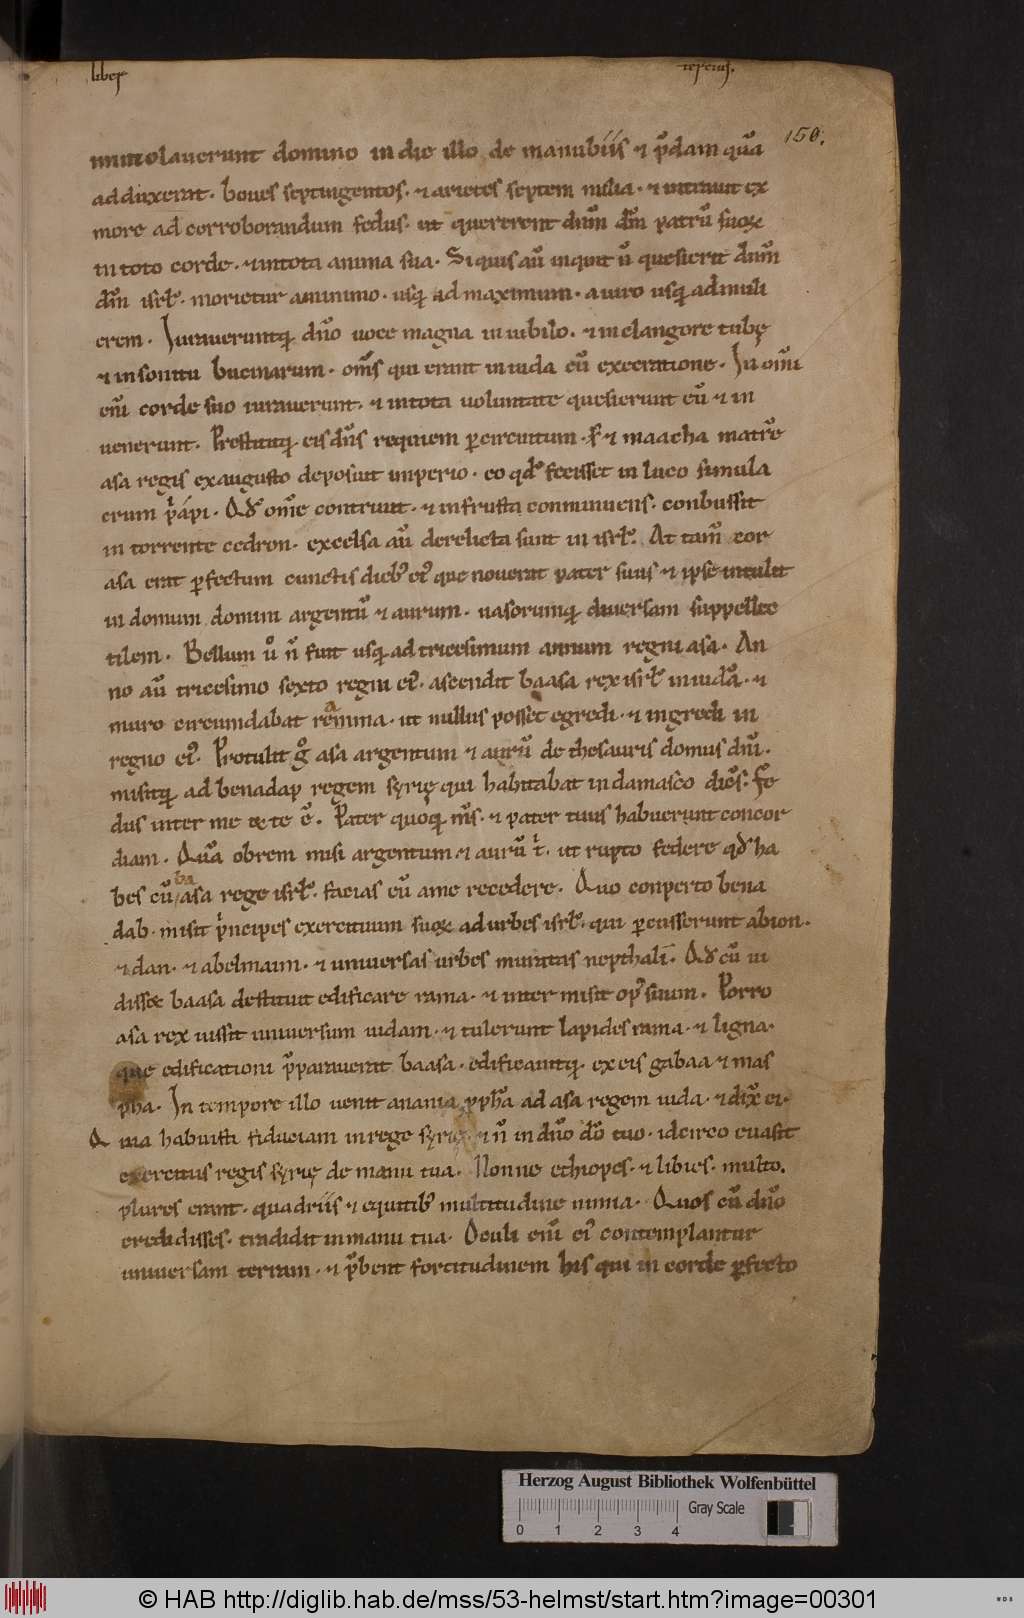 liber tercius.
150.
immolauerunt domino in die illo de manubiis ⁊ p̄dam quā
adduxerant. boues septingentos. ⁊ arietes septem milia. ⁊ intrauit ex
more ad corroborandum fedus. ut quererent dūm dm̄ patrū suoꝝ
in toto corde. ⁊ in tota anima sua. Si quis aū inquit ñ quesierit dūm
dm̄ isrl̄. morietur a minimo. usq; ad maximum. a uiro usq; ad muli
erem. Iurauerunt q; dn̄o uoce magna in iubilo. ⁊ in clangore tubę
⁊ in sonitu bucinarum. om̄s qui erant in iuda cū execratione. In om̄i
eni̅ corde suo iurauerunt. ⁊ in tota uoluntate quesierunt eū ⁊ in
uenerunt. Prestitit q; eis dn̄s requiem ꝑ circuitum. S; ⁊ maacha matrē
asa regis ex augusto deposuit imperio. eo qđ fecisset in luco simula
crum priápi. Qđ om̄e contriuit. ⁊ in frusta conminuens. conbussit
in torrente cedron. excelsa aū derelicta sunt in isrl̄. At tam̄ cor
asa erat ꝑfectum cunctis dieb; eiꝰ que nouerat pater suus ⁊ ipse intulit
in domum domini argentū ⁊ aurum. uasorumq; diuersam suppellec
tilem. Bellum ů ñ fuit usq; ad tricesimum annum regni asa. An
no aū tricesimo sexto regni eiꝰ. ascendit baasa rex isrl̄ in iudā. ⁊
muro circumdabat ramma. ut nullus posset egredi. ⁊ ingredi in
regno eiꝰ. Protulit g̊ asa argentum ⁊ aurū de thesauris domus dn̄i.
misitq; ad benadap regem syrię qui habitabat in damasco dic̄s. Fe
dus inter me & te ē. Pater quoq; mūs. ⁊ pater tuus habuerunt concor
diam. Quā obrem misi argentum ⁊ aurū t̄. ut rupto federe qđ ha
bes cū baasa rege isrl̄. facias eū a me recedere. Quo conperto bena
dab. misit prıncipes exercituum suoꝝ ad urbes isrl̄. qui ꝑcusserunt abion.
⁊ dan. ⁊ abelmaim. ⁊ uniuersas urbes muratas nepthalī. Qđ cū ui
diss& baasa destituit edificare rama. ⁊ inter misit opꝰ suum. Porro
asa rex iussit uniuersum iudam. ⁊ tulerunt lapides rama. ⁊ ligna.
que edificationi p̄parauerat baasa. edificauitq; ex eis gabaa ⁊ mas
pha. In tempore illo uenit anania pph̄a ad asa regem iuda. ⁊ dix̄ ei.
Q uia habuisti fiduciam in rege syrię. ⁊ ñ in dn̄o dō tuo. idcirco euasit
exercitus regis syrię de manu tua. Nonne ethiopes. ⁊ libies. multo.
plures erant. quadriis ⁊ equitib; multitudine nimia. Quos cū dn̄o
credidisses. tradidit in manu tua. Oculi eni̅ eiꝰ contemplantur
uniuersam terram. ⁊ p̄bent fortitudinem his qui in corde ꝑfecto
Herzog August Bibliothek Wolfenbüttel
0 1 2 3 4 Gray Scale
© HAB http://diglib.hab.de/mss/53-helmst/start.htm?image=00301